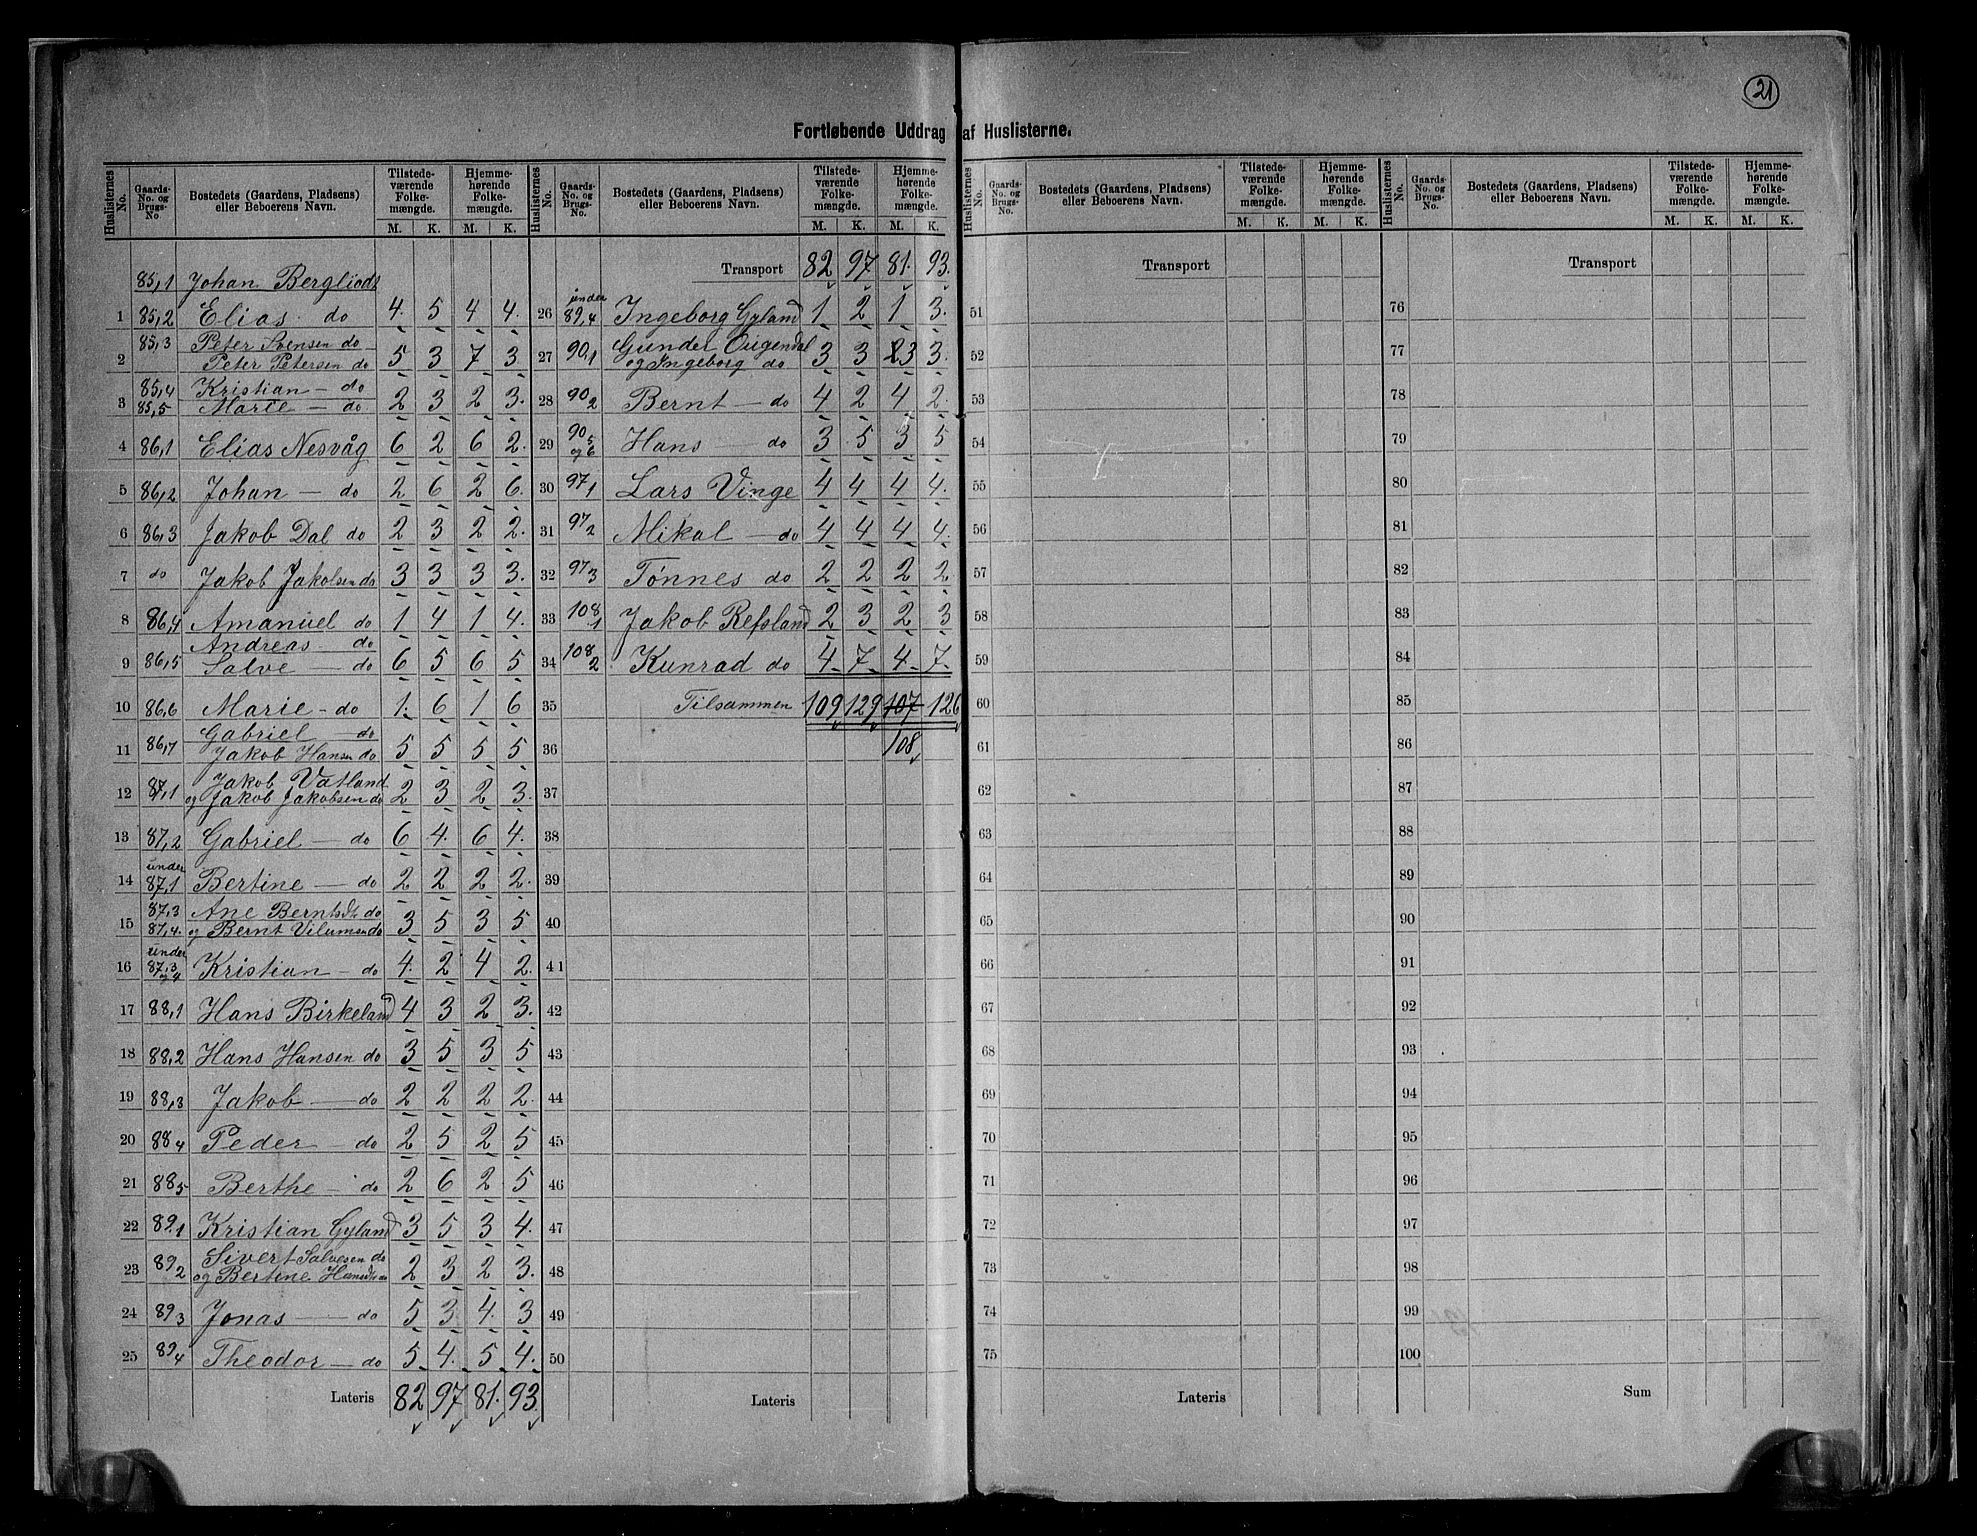 21
Fortløbende Uddrag af Huslisterne.
Huslisternes No. Gaards-No. og Brugs-No. Bostedets (Gaardens, Pladsens) eller Beboerens Navn. Tilstedeværende Folkemængde. M. K. Hjemmehørende Folkemængde. M. K.
85,1 Johan Bergliodt
1 85,2 Elias do 4 5 4 4
2 85,3 Peter Svensen do
Peter Petersen do 5 3 7 3
85,4 Kristian do
3 85,5 Marie do 2 3 2 3
4 86,1 Elias Nesvåg 6 2 6 2
5 86,2 Johan do 2 6 2 6
6 86,3 Jakob Dal do 2 3 2 2
7 do Jakob Jakobsen do 3 3 3 3
8 86,4 Amanuel do 1 4 1 4
Andreas do
9 86,5 Salve do 6 5 6 5
10 86,6 Marie do 1 6 1 6
Gabriel do
11 86,7 Jakob Hansen do 5 5 5 5
12 87,1 Jakob Vatland
og Jakob Jakobsen do 2 3 2 3
13 87,2 Gabriel do 6 4 6 4
14 under 87,1 Bertine do 2 2 2 2
87,3 Ane Berntsdt do
15 87,4 og Bernt Vilumsen do 3 5 3 5
16 under 87,3 og 4 Kristian do 4 2 4 2
17 88,1 Hans Birkeland 4 3 2 3
18 88,2 Hans Hansen do 3 5 3 5
19 88,3 Jakob do 2 2 2 2
20 88 4 Peder do 2 5 2 5
21 88 5 Berthe do 2 6 2 5
22 89,1 Kristian Gyland 3 5 3 4
23 89 2 Sivert Salvesen do
og Bertine Hansdt do 2 3 2 3
24 89 3 Jonas do 5 3 4 3
25 89 4 Theodor do 5 4 5 4
Lateris 82 97 81 93
Huslisternes No. Gaards-No. og Brugs-No. Bostedets (Gaardens, Pladsens) eller Beboerens Navn. Tilstedeværende Folkemængde. M. K. Hjemmehørende Folkemængde. M. K.
Transport 82 97 81 93
26 under 89,4 Ingeborg Gyland 1 2 1 3
27 90,1 Gunder Ougendal
og Ingeborg do 3 3 3 3
28 90 2 Bernt do 4 2 4 2
29 90 5 og 6 Hans do 3 5 3 5
30 97 1 Lars Vinge 4 4 4 4
31 97 2 Mikal do 4 4 4 4
32 97 3 Tønnes do 2 2 2 2
33 108 1 Jakob Refsland 2 3 2 3
34 108 2 Kunrad do 4 7 4 7
35 Tilsammen 109 129 107 126
36 108
37
38
39
40
41
42
43
44
45
46
47
48
49
50
Lateris
Huslisternes No. Gaards-No. og Brugs-No. Bostedets (Gaardens, Pladsens) eller Beboerens Navn. Tilstedeværende Folkemængde. M. K. Hjemmehørende Folkemængde. M. K.
Transport
51
52
53
54
55
56
57
58
59
60
61
62
63
64
65
66
67
68
69
70
71
72
73
74
75
Lateris
Huslisternes No. Gaards-No. og Brugs-No. Bostedets (Gaardens, Pladsens) eller Beboerens Navn. Tilstedeværende Folkemængde. M. K. Hjemmehørende Folkemængde. M. K.
Transport
76
77
78
79
80
81
82
83
84
85
86
87
88
89
90
91
92
93
94
95
96
97
98
99
100
Sum